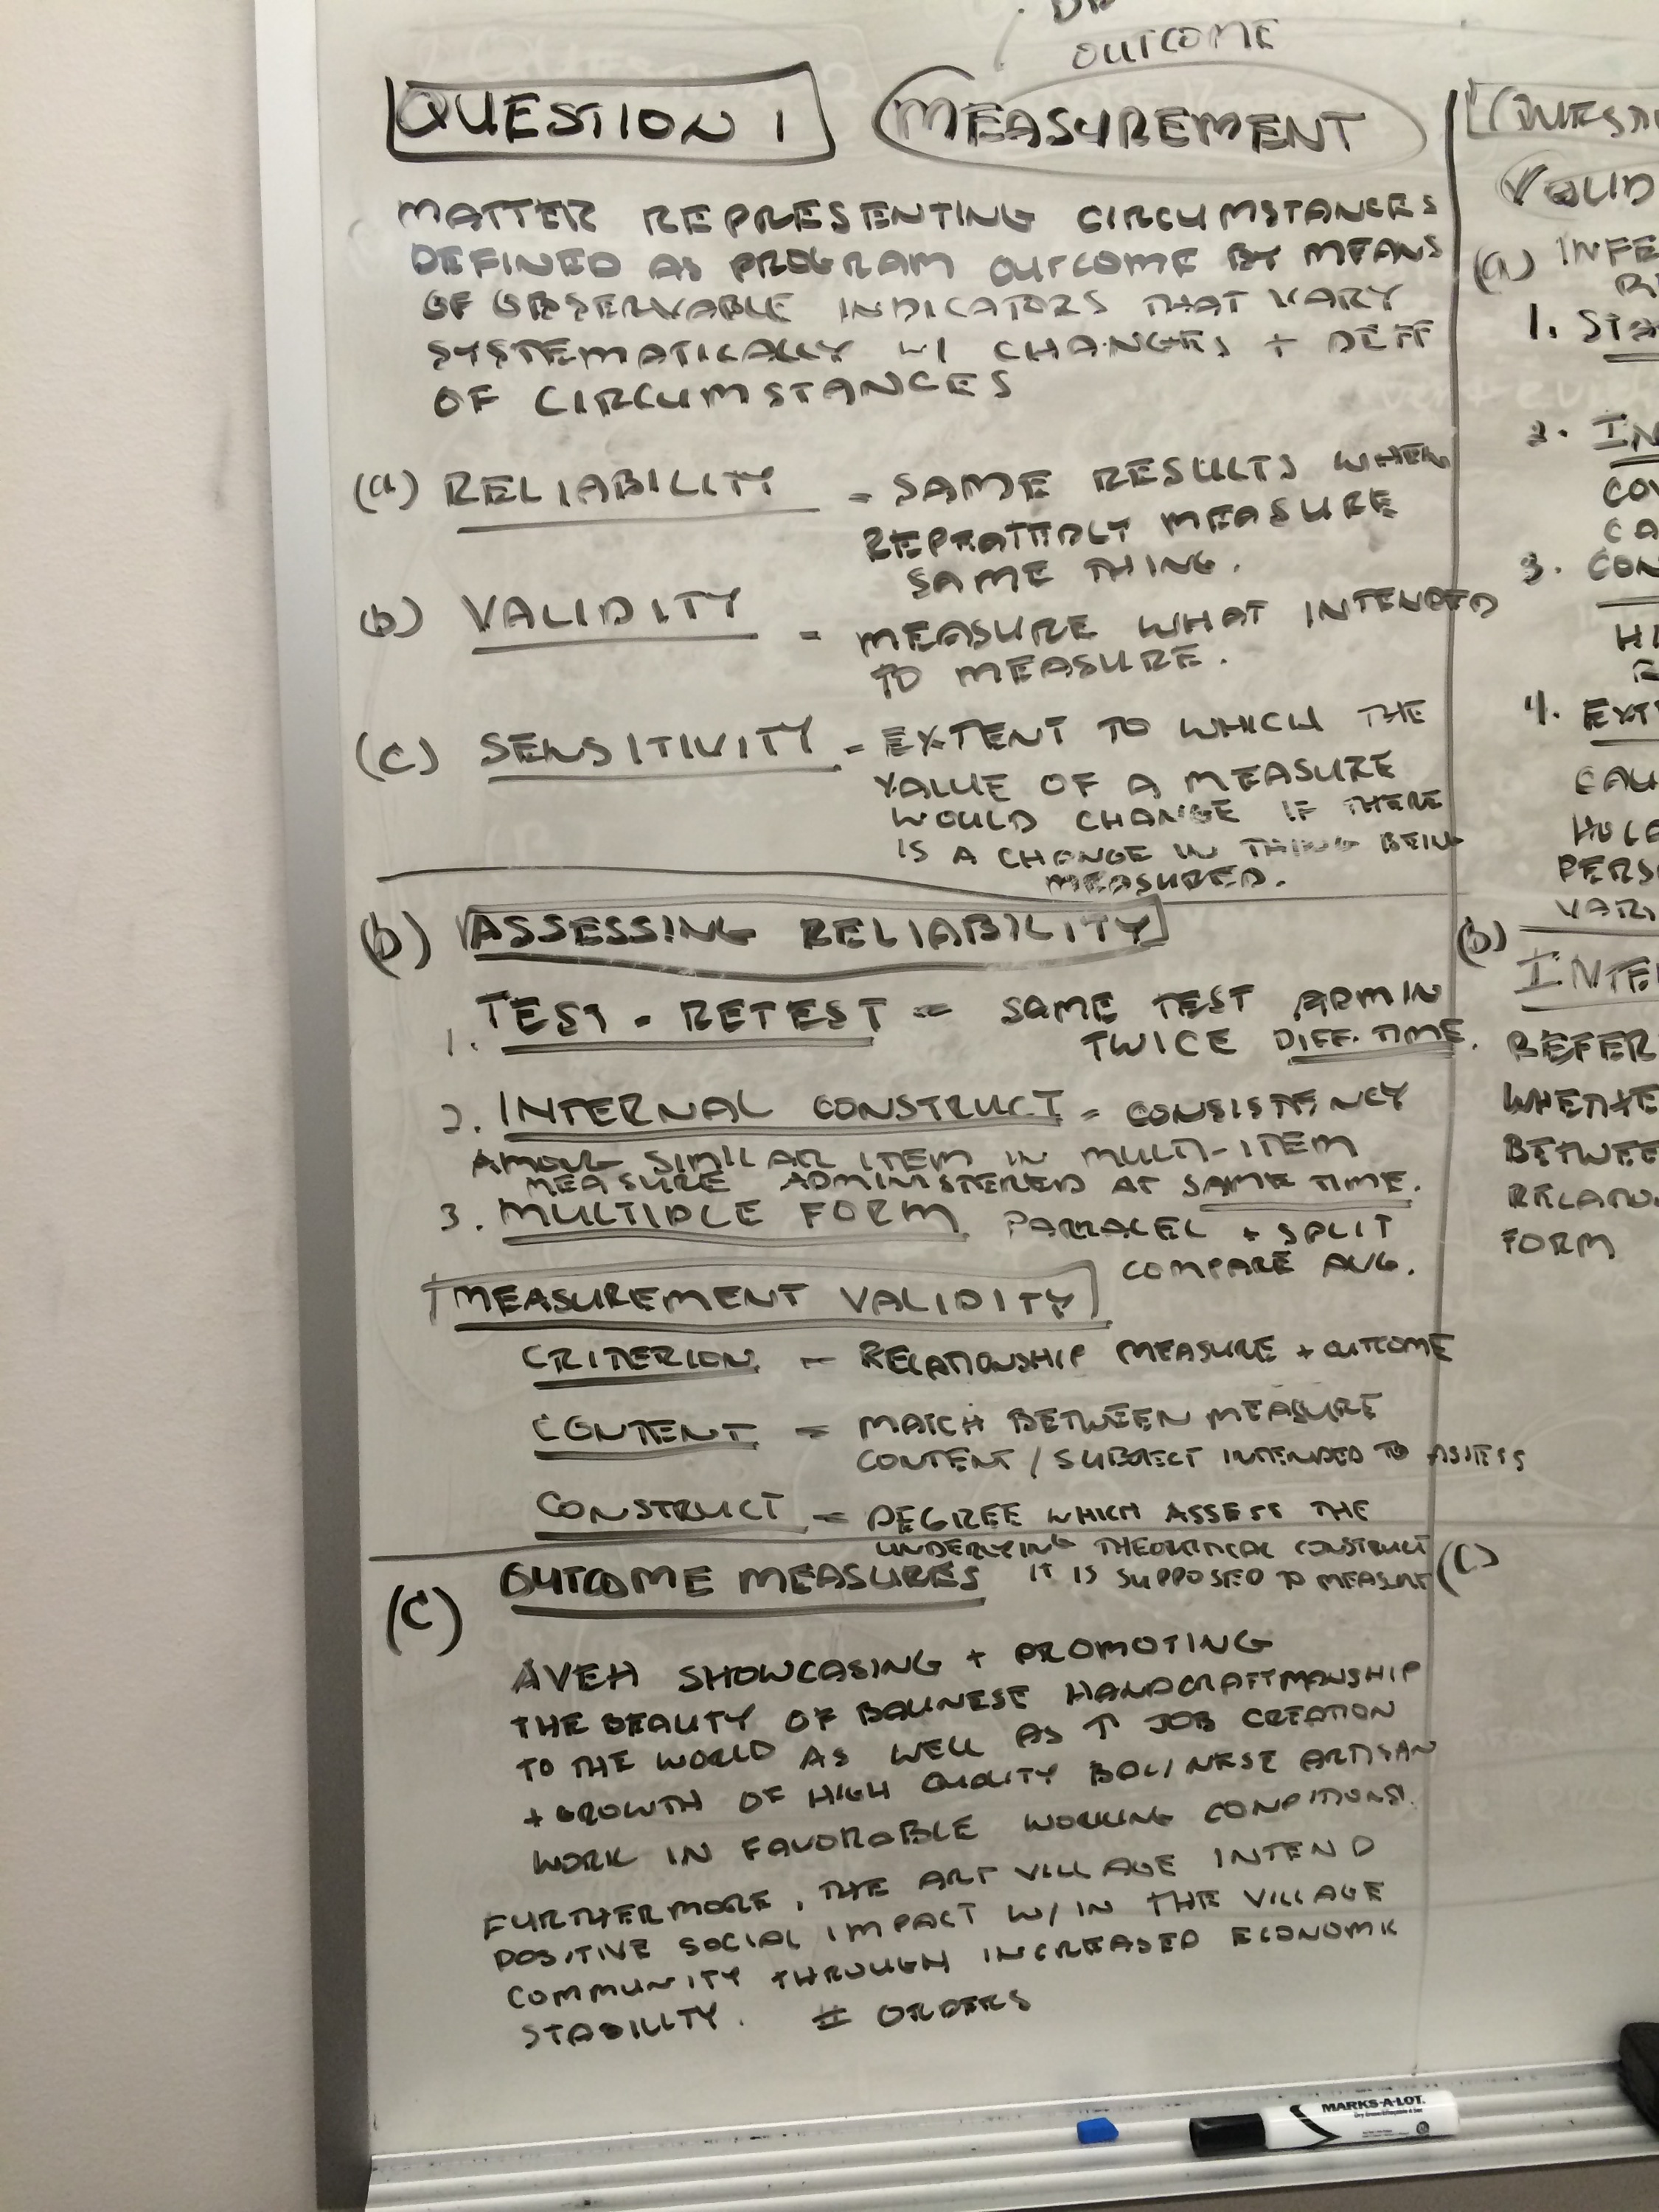 OUTCOME
QUESTION 1 MEASUREMENT
MATTER REPRESENTING CIRCUMSTANCES
DEFINED AS PROGRAM OUTCOME BY MEANS
OF OBSERVABLE INDICATORS THAT VARY
SYSTEMATICALLY W/ CHANGES + DIFF
OF CIRCUMSTANCES
(a) RELIABILITY - SAME RESULTS WHEN
MEASURE
SAME THING.
(b) VALIDITY - MEASURE WHAT INTENDED
TO MEASURE.
(C) SENSITIVITY - EXTENT TO WHICH THE
VALUE OF A MEASURE
WOULD CHANGE IF THERE
IS A CHANGE IN THING BEING
MEASURED.
(b) ASSESSING RELIABILITY
1. TEST - RETEST = SAME TEST ADMIN
TWICE DIFF. TIME.
2. INTERNAL CONSTRUCT = CONSISTENCY
AMONG SIMILAR ITEM IN MULTI-ITEM
MEASURE ADMINISTERED AT SAME TIME.
3. MULTIPLE FORM PARRALEL + SPLIT
COMPARE AVG.
MEASUREMENT VALIDITY
CRITERION - RELATIONSHIP MEASURE + OUTCOME
CONTENT = MATCH BETWEEN MEASURE
CONTENT / SUBJECT INTENDED TO ASSESS
CONSTRUCT = DEGREE WHICH ASSESS THE
UNDERLYING THEORETICAL CONSTRUCT
IT IS SUPPOSED TO MEASURE
(C) OUTCOME MEASURES
AVEH SHOWCASING + PROMOTING
THE BEAUTY OF BALINESE HANDCRAFTMANSHIP
TO THE WORLD AS WELL AS ↑ JOB CREATION
+ GROWTH OF HIGH QUALITY BALINESE ARTISAN
WORK IN FAVORABLE WORKING CONDITIONS.
FURTHERMORE, THE ART VILLAGE INTEND
POSITIVE SOCIAL IMPACT W/IN THE VILLAGE
COMMUNITY THROUGH INCREASED ECONOMIC
STABILITY. # ORDERS
(a)
1.
2.
3.
4.
(b)
FORM
(C)
MARKS-A-LOT.